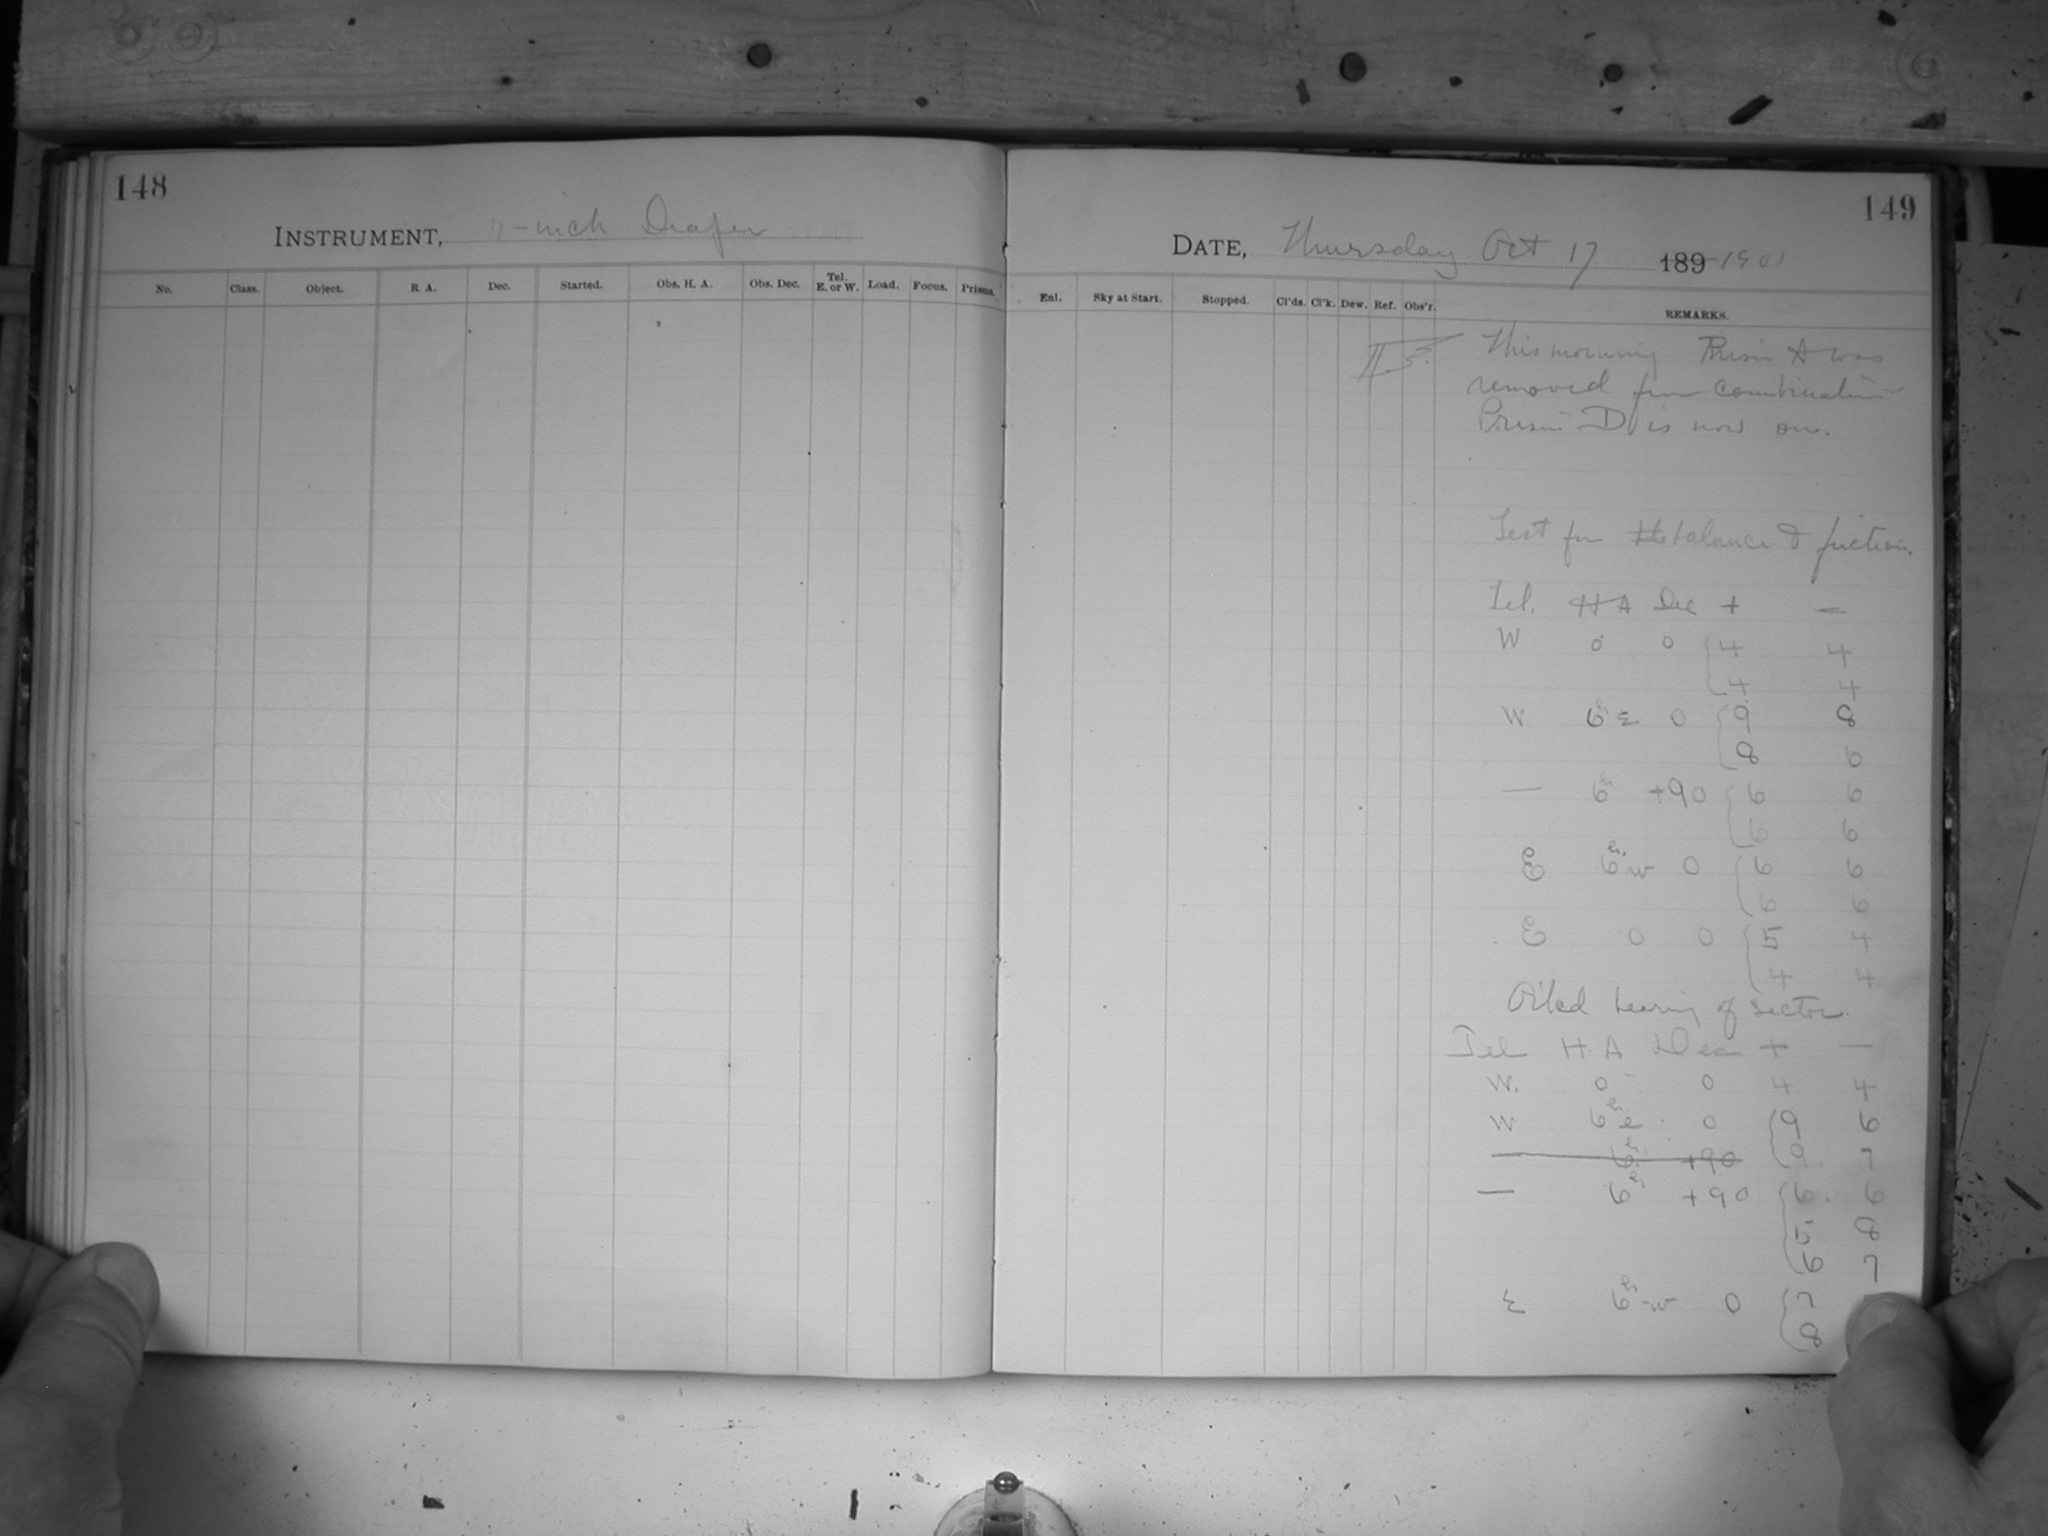 148
INSTRUMENT, 11-inch Draper
No. Class. Object. R A. Dec. Started. Obs. H. A. Obs. Dec. Tel. E. or W. Load. Focus. Prisms.
149
DATE, Thursday Oct 17 189 1901
Enl. Sky at Start. Stopped. Cl'ds. Cl'k. Dew. Ref. Obs'r. REMARKS.
This morning Prism A was
removed from combination
Prism D is now on.
Test for balance & friction.
Tel. H A Dec + —
W 0 0 4 4
4 4
W 6h E 0 9 8
8 6
— 6h +90 6 6
6 6
E 6h. w 0 6 6
6 6
E 0 0 5 4
4 4
Oiled bearing of sector.
Tel H. A Dec + —
W. 0 0 4 4
W 6h e. 0 9 6
— 6h +90 9. 7
— 6h +90 6. 6
5 8
6 7
E 6h w 0 7
8